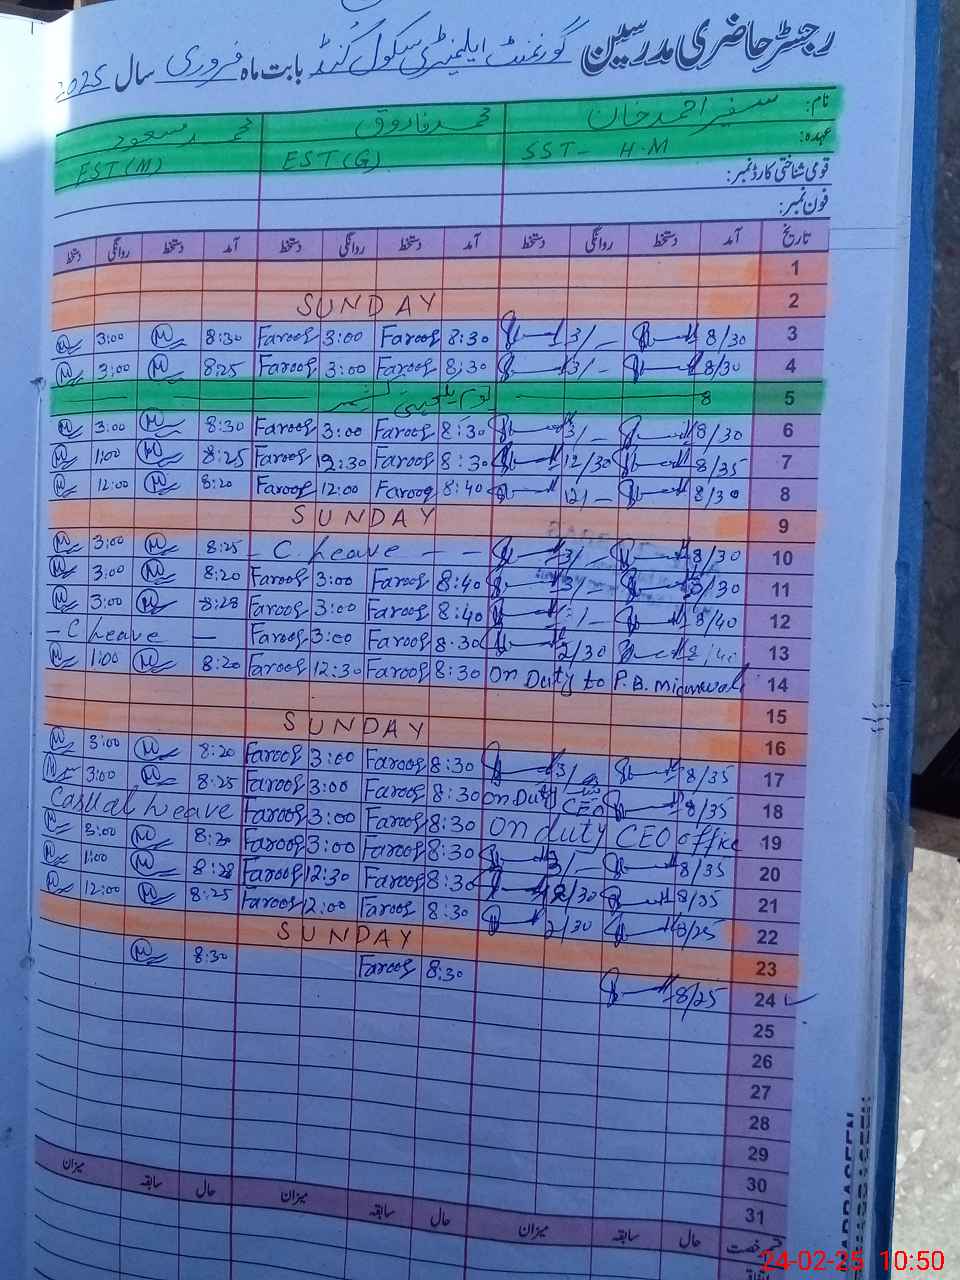 رجسٹر حاضری مدرسین گورنمنٹ ایلیمنٹری سکول کُنڈ بابت ماہ فروری سال 2025
نام: سفیر احمد خان محمد فاروق محمد مسعود
عہدہ: SST- H.M EST(G) EST(M)
قومی شناختی کارڈ نمبر:
فون نمبر:
تاریخ آمد دستخط روانگی دستخط آمد دستخط روانگی دستخط آمد دستخط روانگی دستخط
1
SUNDAY 2
M 3:00 M 8:30 Farooq 3:00 Farooq 8:30 3/- 8/30 3
M 3:00 M 8:25 Farooq 3:00 Farooq 8:30 3/- 8/30 4
یوم یکجہتی کشمیر 8 5
M 3:00 M 8:30 Farooq 3:00 Farooq 8:30 3/- 8/30 6
M 1:00 M 8:25 Farooq 12:30 Farooq 8:30 12/30 8/35 7
M 12:00 M 8:20 Farooq 12:00 Farooq 8:40 12/- 8/30 8
SUNDAY 9
M 3:00 M 8:25 - C. Leave - - 3/- 8/30 10
M 3:00 M 8:20 Farooq 3:00 Farooq 8:40 3/- 8/30 11
M 3:00 M 8:28 Farooq 3:00 Farooq 8:40 /- 8/40 12
- C Leave - Farooq 3:00 Farooq 8:30 2/30 8/40 13
M 1:00 M 8:20 Farooq 12:30 Farooq 8:30 On Duty to P.B. Mianwali 14
15
SUNDAY 16
M 3:00 M 8:20 Farooq 3:00 Farooq 8:30 3/- 8/35 17
M 3:00 M 8:25 Farooq 3:00 Farooq 8:30 On Duty CEO 8/35 18
Casual Leave Farooq 3:00 Farooq 8:30 On duty CEO office 19
M 3:00 M 8:20 Farooq 3:00 Farooq 8:30 3/- 8/35 20
M 1:00 M 8:28 Farooq 12:30 Farooq 8:30 12/30 8/35 21
M 12:00 M 8:25 Farooq 12:00 Farooq 8:30 2/30 8/25 22
SUNDAY 23
M 8:30 Farooq 8:30 8/25 24
25
26
27
28
29
30
31
حال سابقہ میزان حال سابقہ میزان حال سابقہ میزان
24-02-25 10:50